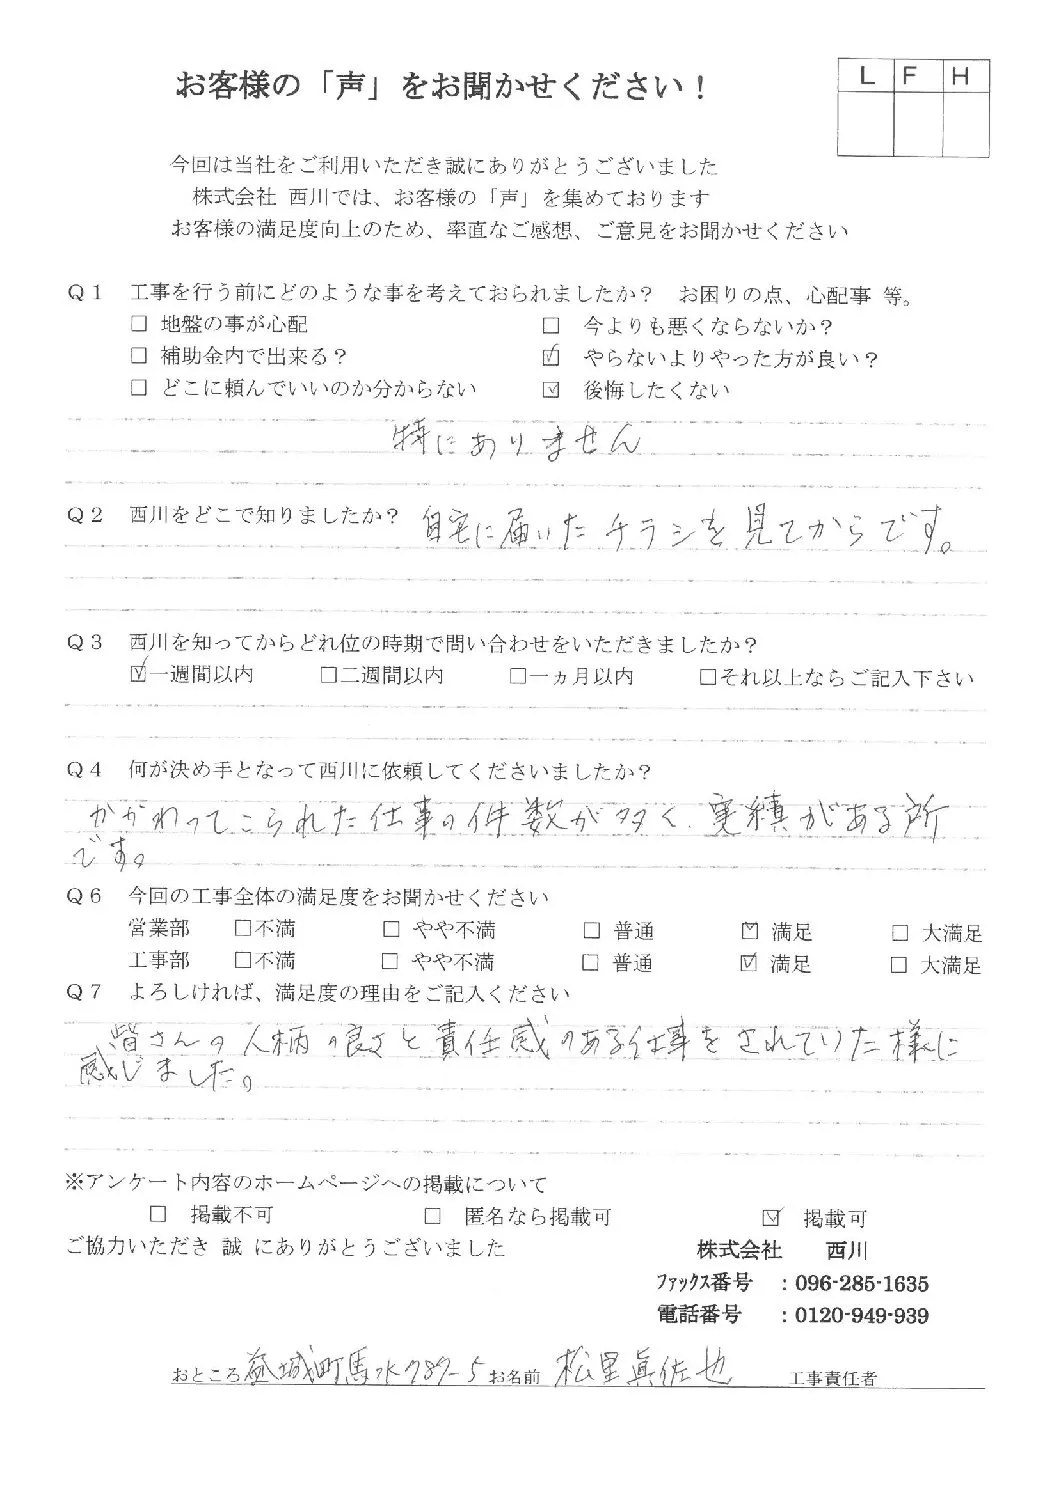 お客様の「声」をお聞かせください!
L F H
今回は当社をご利用いただき誠にありがとうございました
株式会社 西川では、お客様の「声」を集めております
お客様の満足度向上のため、率直なご感想、ご意見をお聞かせください
Q1 工事を行う前にどのような事を考えておられましたか? お困りの点、心配事 等。
□ 地盤の事が心配 □ 今よりも悪くならないか?
□ 補助金内で出来る? ☑ やらないよりやった方が良い?
□ どこに頼んでいいのか分からない ☑ 後悔したくない
特にありません
Q2 西川をどこで知りましたか? 自宅に届いたチラシを見てからです。
Q3 西川を知ってからどれ位の時期で問い合わせをいただきましたか?
☑一週間以内 □二週間以内 □一ヵ月以内 □それ以上ならご記入下さい
Q4 何が決め手となって西川に依頼してくださいましたか?
かかわってこられた仕事の件数が多く、実績がある所
です。
Q6 今回の工事全体の満足度をお聞かせください
営業部 □不満 □ やや不満 □ 普通 ☑ 満足 □ 大満足
工事部 □不満 □ やや不満 □ 普通 ☑ 満足 □ 大満足
Q7 よろしければ、満足度の理由をご記入ください
皆さんの人柄の良さと責任感のある仕事をされていた様に
感じました。
※アンケート内容のホームページへの掲載について
□ 掲載不可 □ 匿名なら掲載可 ☑ 掲載可
ご協力いただき 誠 にありがとうございました
株式会社 西川
ファックス番号 :096-285-1635
電話番号 :0120-949-939
おところ 益城町馬水789-5 お名前 松里眞佐也 工事責任者